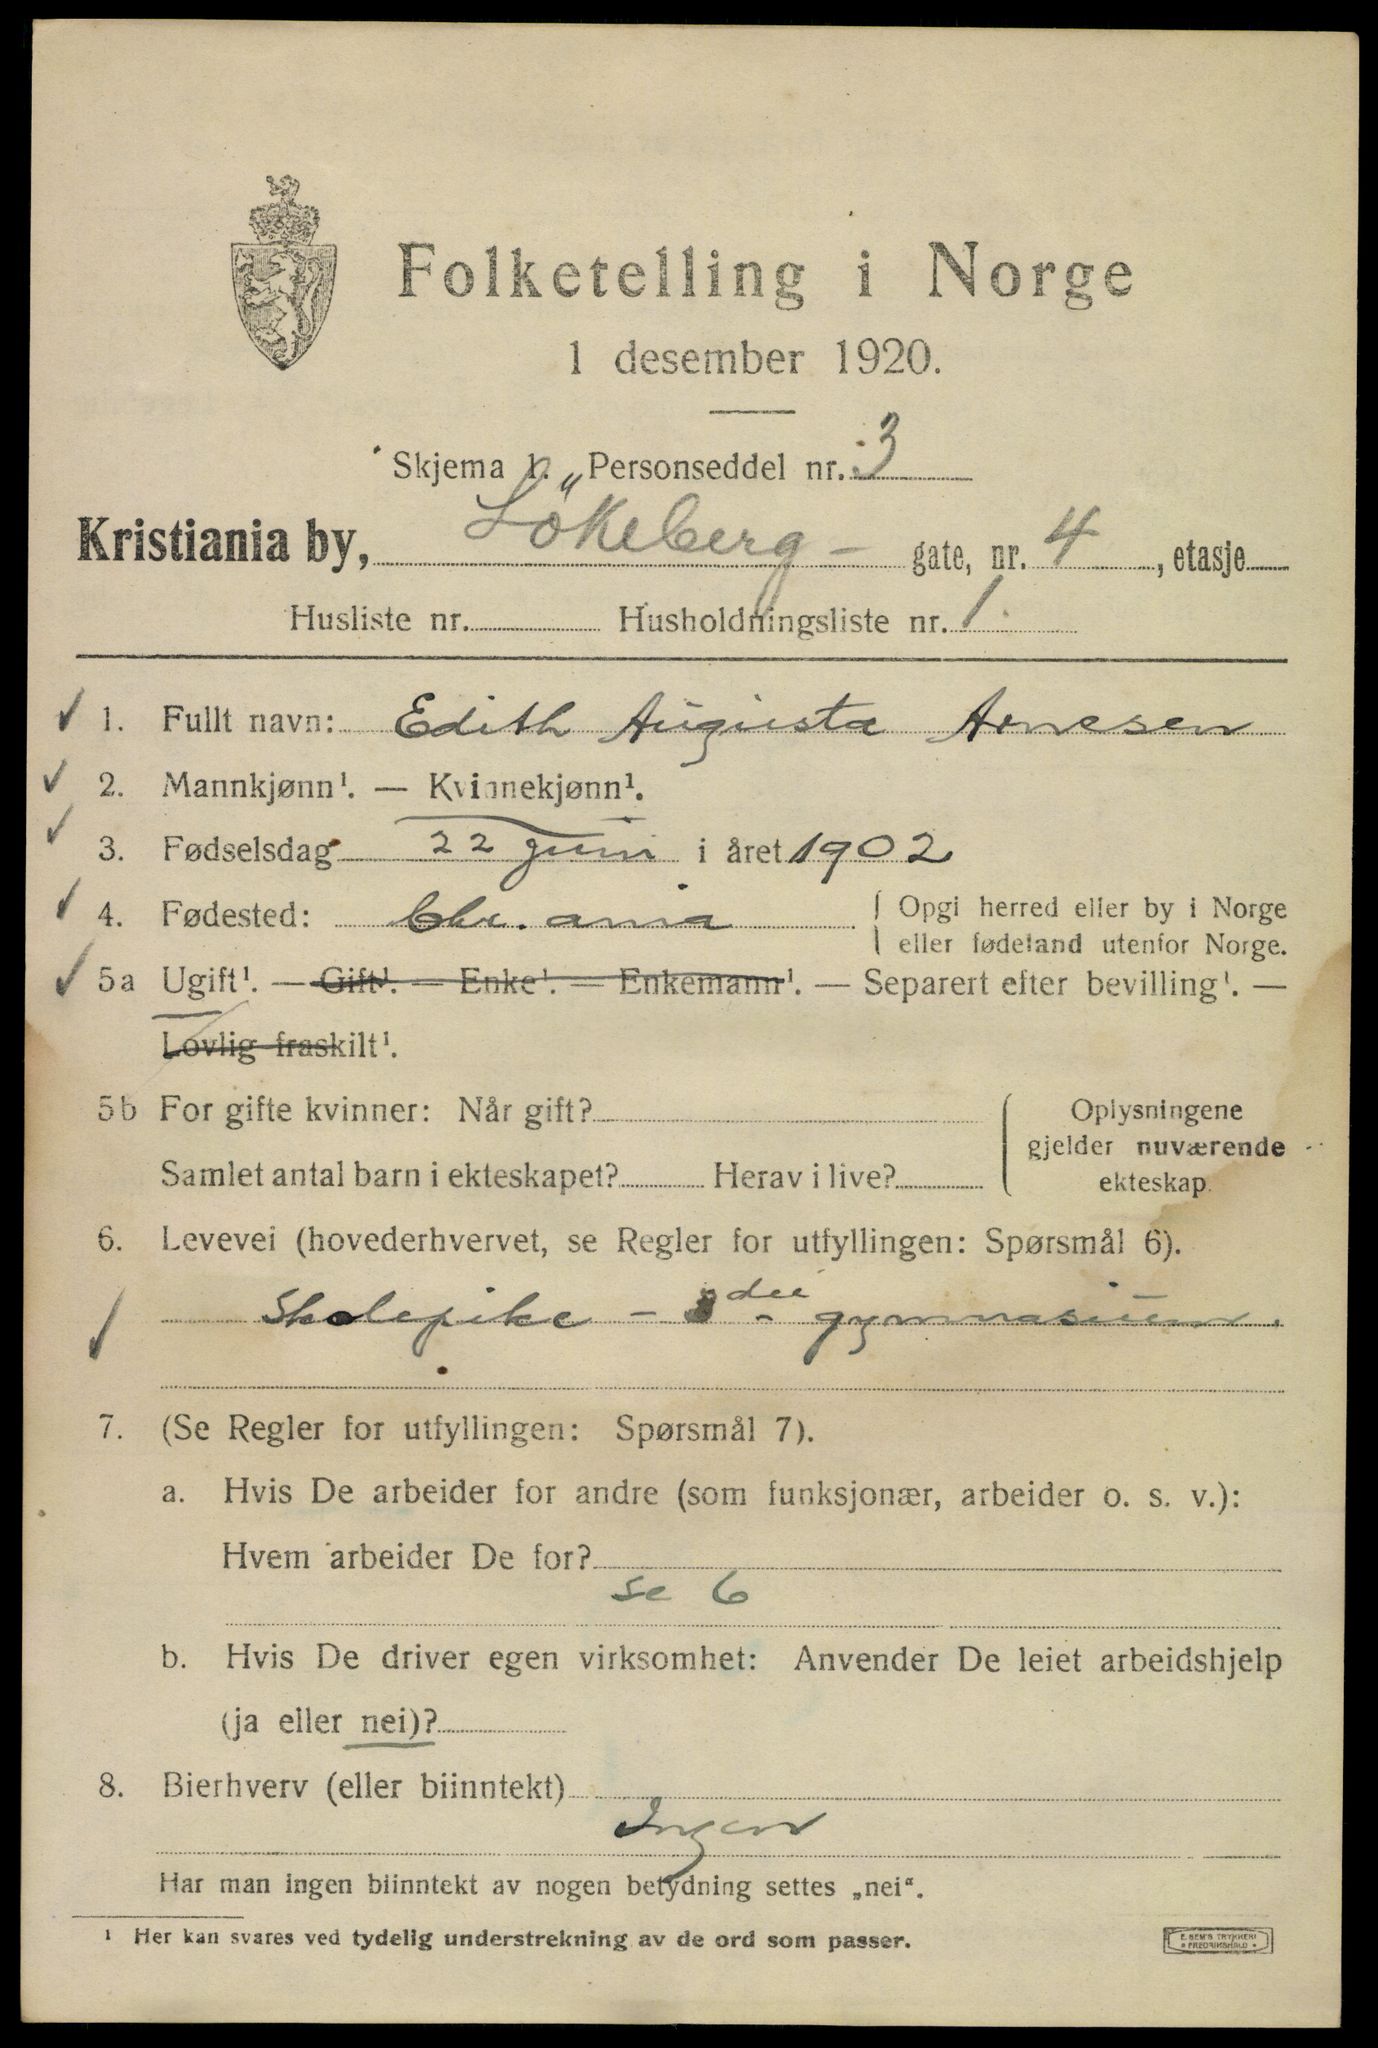 Folketelling i Norge
1 desember 1920.
Skjema 1. Personseddel nr. 3
Kristiania by, Lökeberg- gate, nr. 4, etasje
Husliste nr. Husholdningsliste nr. 1.
1. Fullt navn: Edith Augusta Arnesen
2. Mannkjønn¹. — Kvinnekjønn¹.
3. Fødselsdag 22 juni i året 1902
4. Fødested: Chr.ania Opgi herred eller by i Norge
eller fødeland utenfor Norge.
5a Ugift¹. — Gift¹. — Enke¹. — Enkemann¹. — Separert efter bevilling¹. —
Lovlig fraskilt¹.
5b For gifte kvinner: Når gift?
Samlet antal barn i ekteskapet? Herav i live?
Oplysningene
gjelder nuværende
ekteskap.
6. Levevei (hovederhvervet, se Regler for utfyllingen: Spørsmål 6).
Skolepike - 3die gymnasium.
7. (Se Regler for utfyllingen: Spørsmål 7).
a. Hvis De arbeider for andre (som funksjonær, arbeider o. s. v.):
Hvem arbeider De for?
se 6
b. Hvis De driver egen virksomhet: Anvender De leiet arbeidshjelp
(ja eller nei)?
8. Bierhverv (eller biinntekt)
Ingen
Har man ingen biinntekt av nogen betydning settes „nei“.
¹ Her kan svares ved tydelig understrekning av de ord som passer.
E. SEM'S TRYKKERI
FREDRIKSHALD